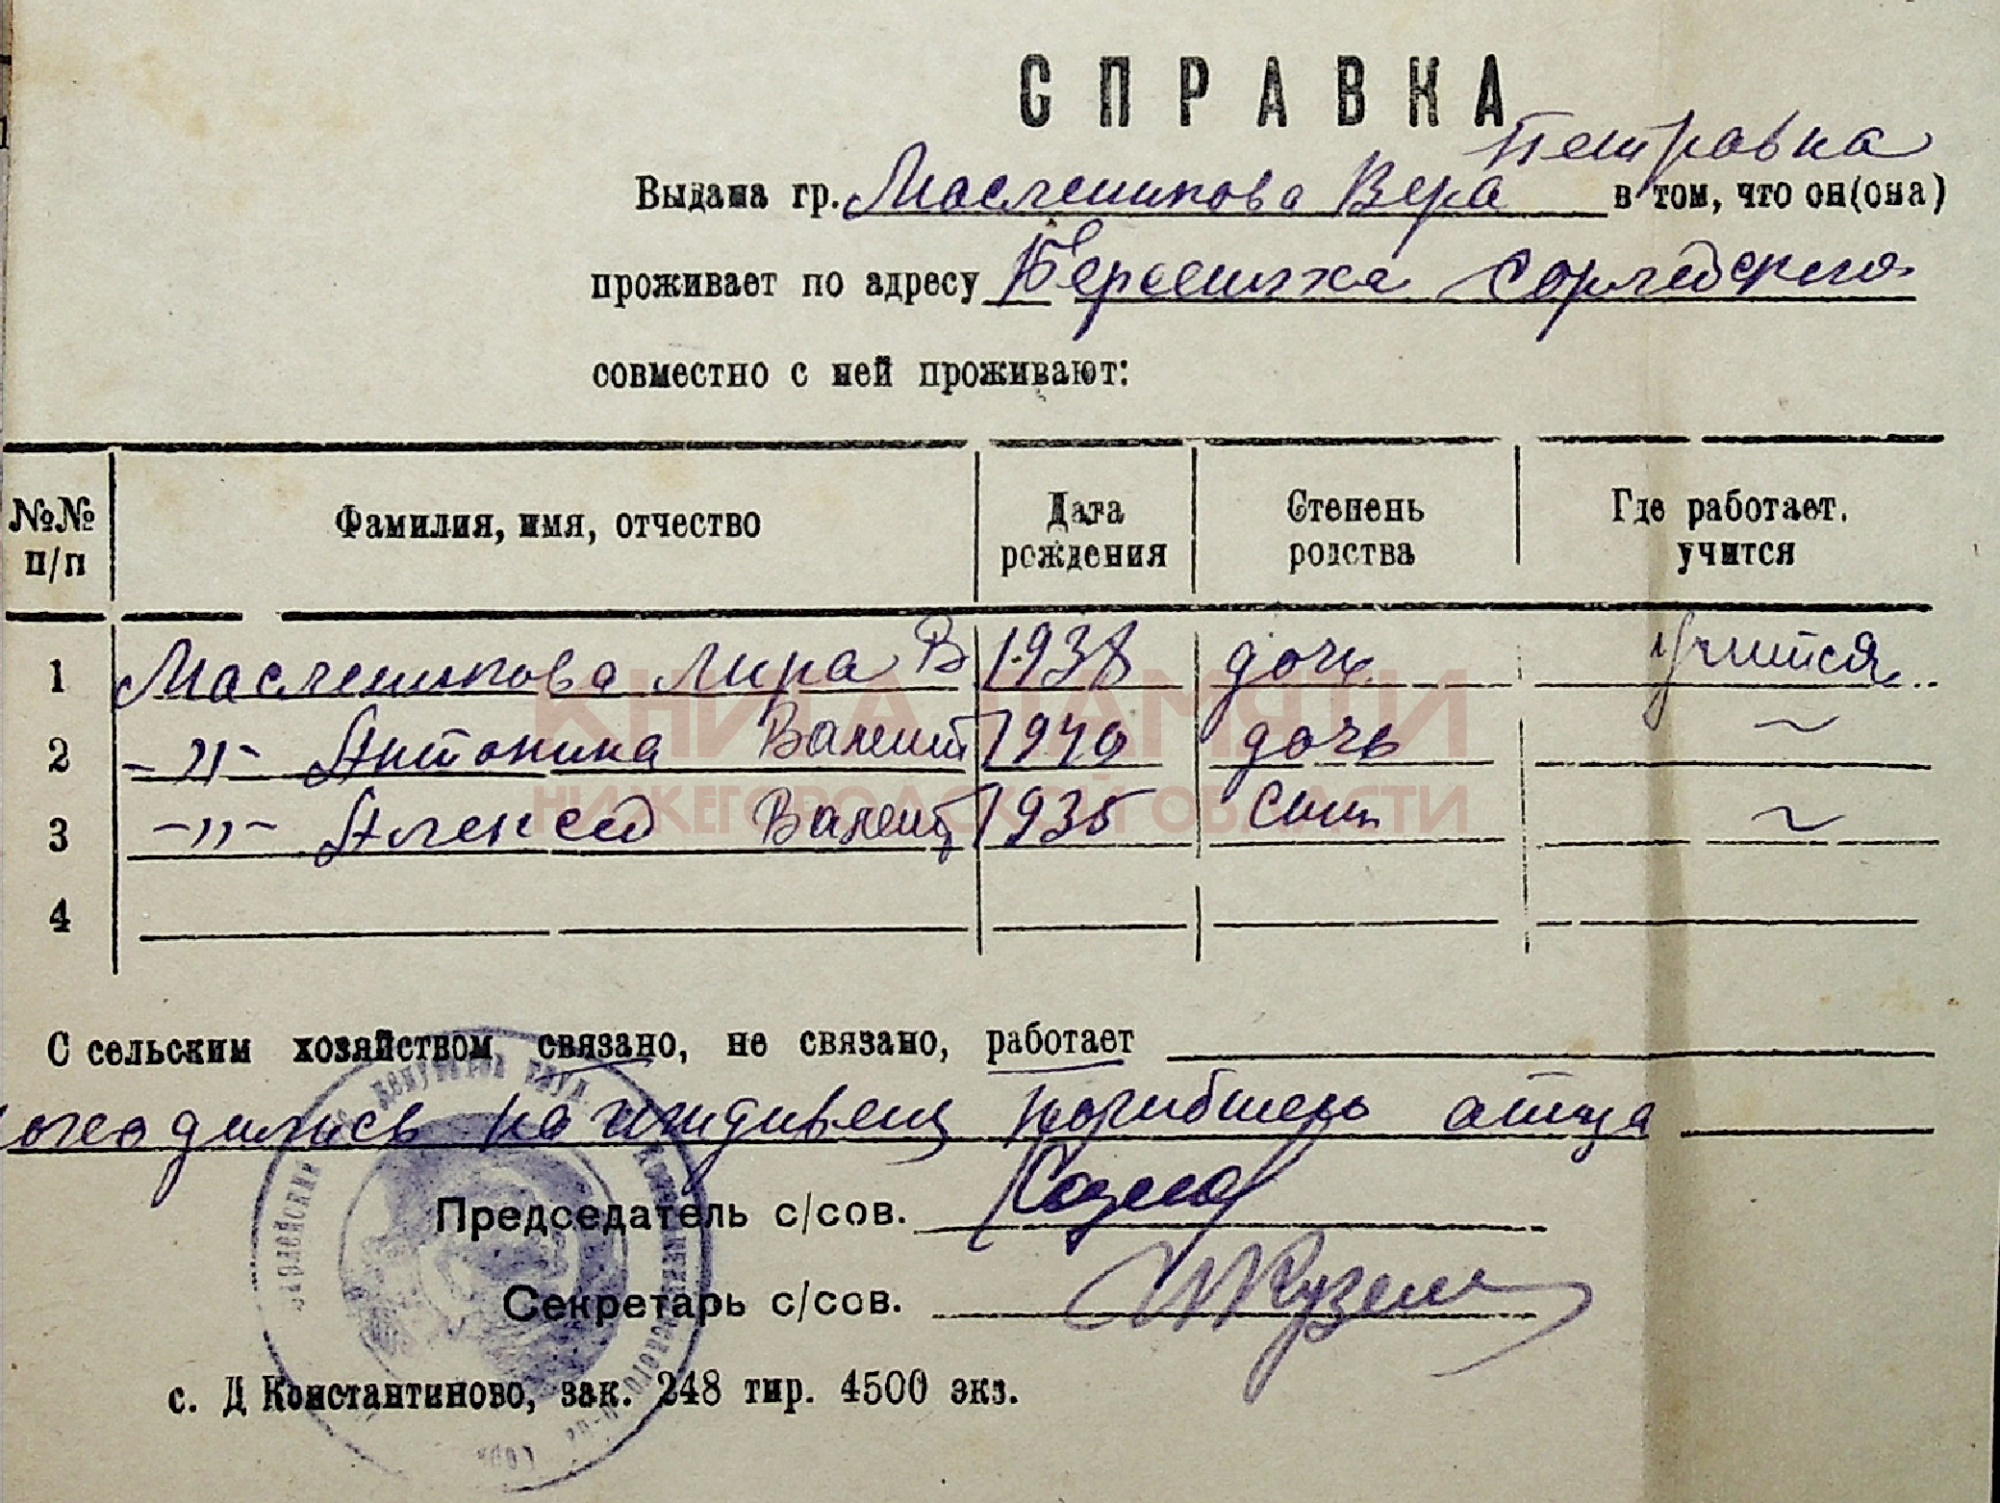 СПРАВКА
Петровна
Выдана гр. Масленикова Вера в том, что он(она)
проживает по адресу Берсениха Сарлейского
совместно с ней проживают:
№№ п/п Фамилия, имя, отчество Дата рождения Степень родства Где работает. учится
1 Масленикова Лира В 1938 дочь учится
2 -"- Антонина Валент 1940 дочь ~
3 -"- Алексей Валент 1935 сын ~
4
С сельским хозяйством связано, не связано, работает
находились на иждивен погибшего отца
Председатель с/сов.
Секретарь с/сов.
с. Д Константиново, зак. 248 тир. 4500 экз.
КНИГА ПАМЯТИ
НИЖЕГОРОДСКОЙ ОБЛАСТИ